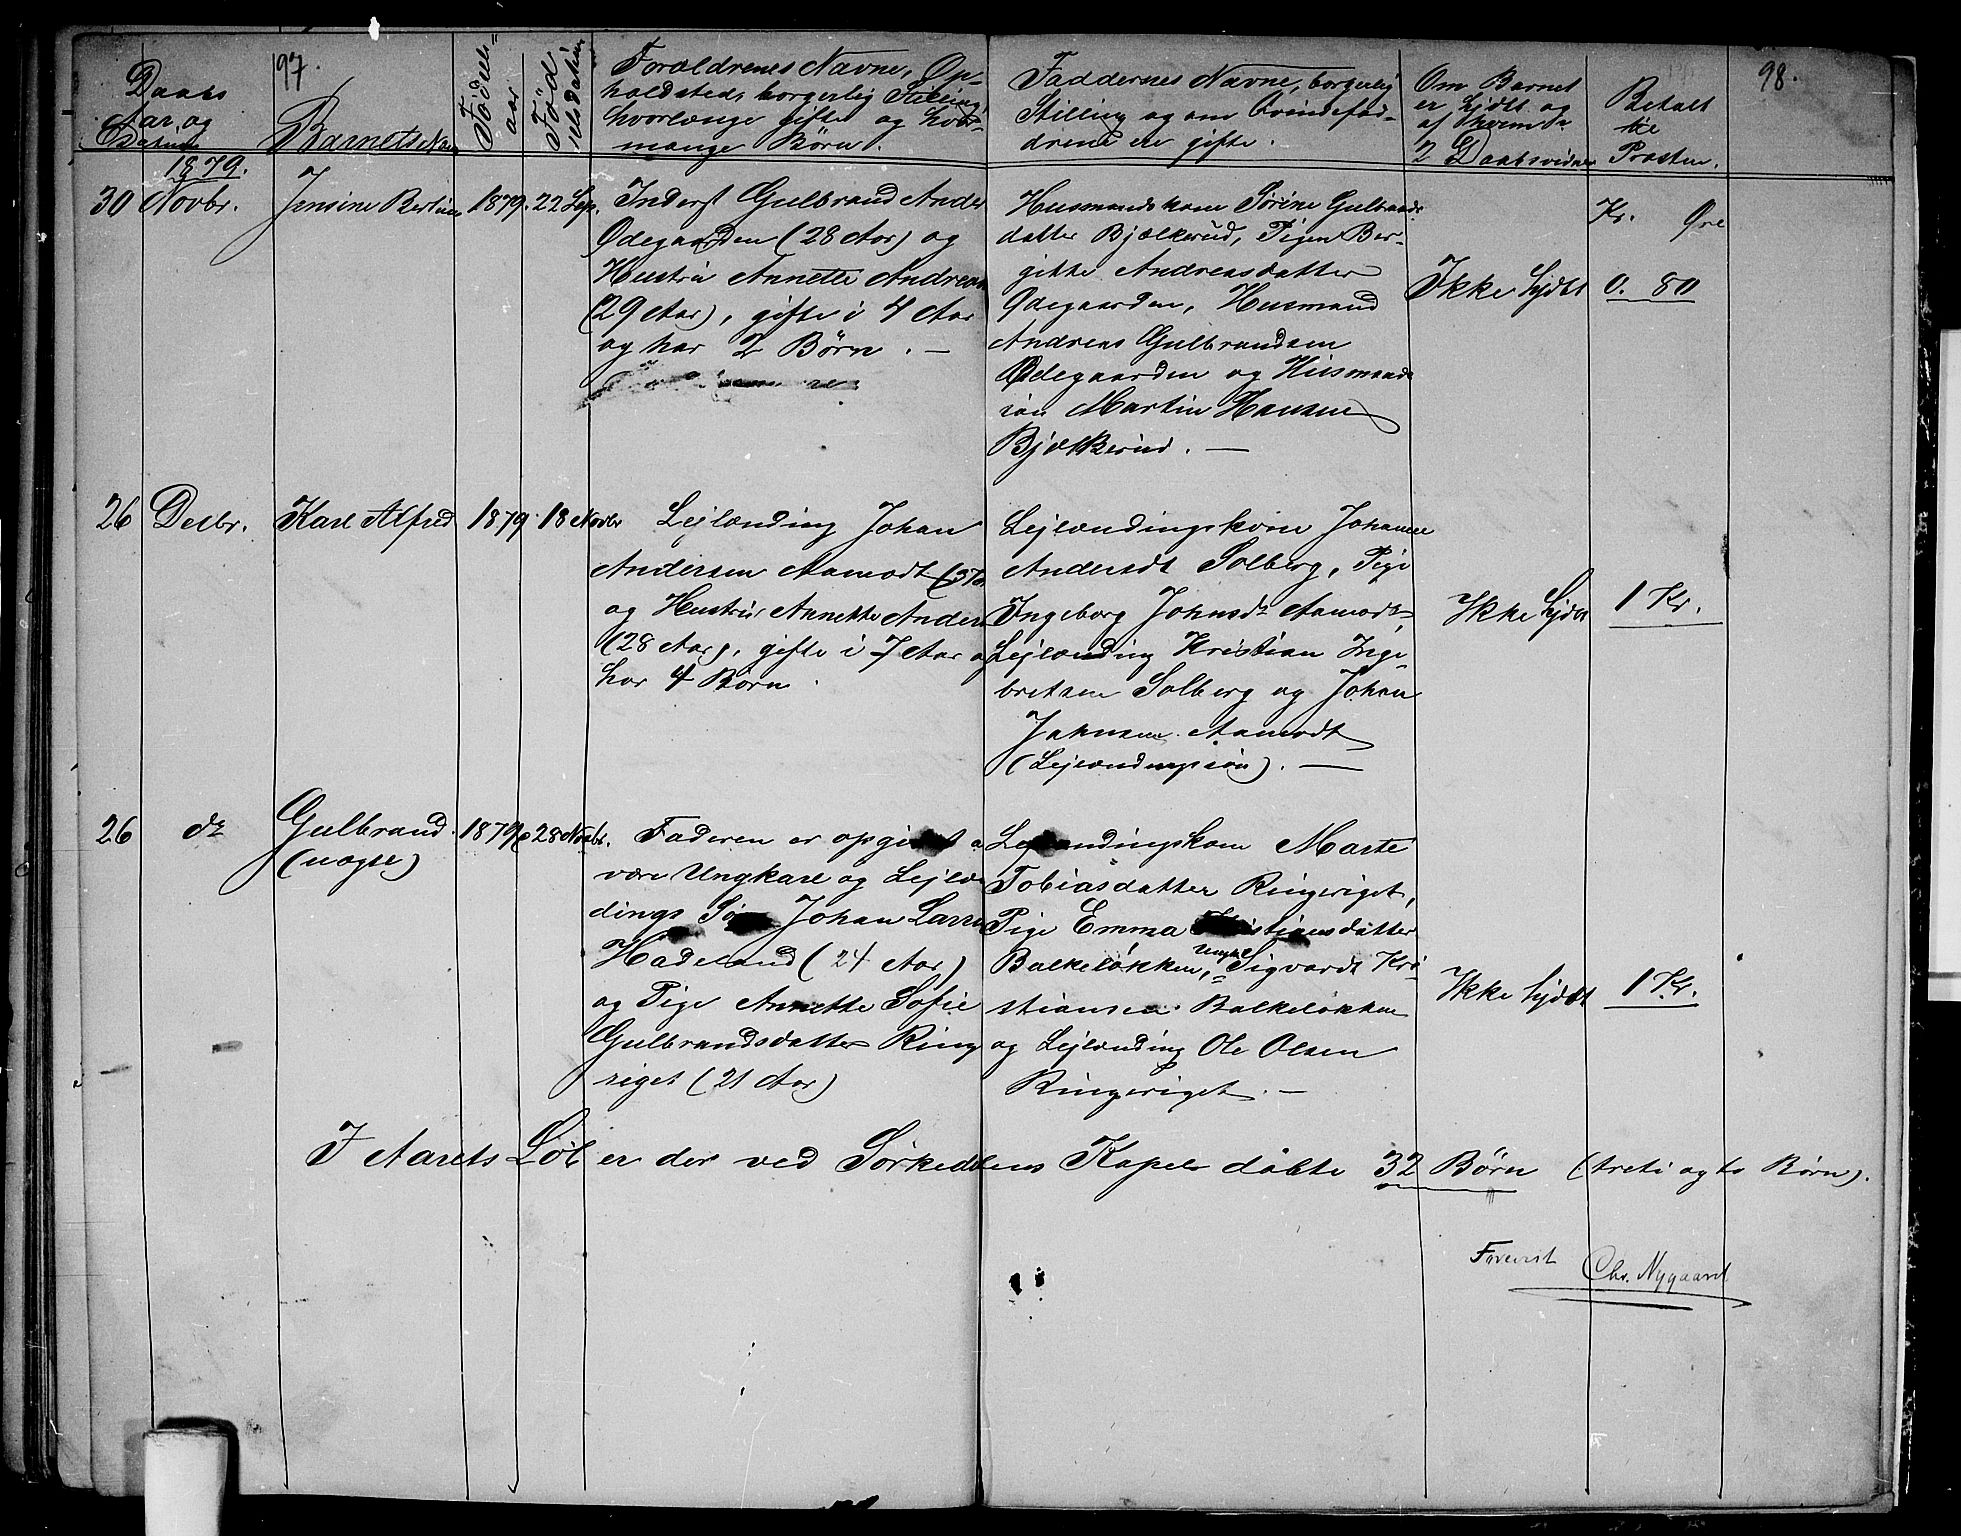 97.
98.
Daabs
Aar og
Datum
Barnets Navn
Fødsels=
aar
Fød=
selsdatum
Forældrenes Navne, Op=
holdsted, borgerlig Stilling,
hvorlænge gifte og hvor=
mange Børn.
Faddernes Navne, borgerlig
Stilling og om Kvindefad=
drene ere gifte.
Om Barnet
er hjdbt og
af hvem &
2 Daabsvidner
Betalt
til
Præsten.
1879.
30 Novbr.
Jensine Bertine
1879.
22 Sep.
Inderst Gulbrand Anders
Ødegaarden (28 Aar) og
Hustru Annette Andreas
(29 Aar), gifte i 4 Aar
og har 2 Børn. —
Husmandskone Sørine Gulbrands
datter Bjælkerud, Pigen Ber=
gitte Andreasdatter
Ødegaarden, Husmand
Andreas Gulbrandsen
Ødegaarden og Husmands
søn Martin Hansen
Bjælkerud. —
Ikke hjdbt
Kr. Øre
0. 80
26 Decbr.
Karl Alfred
1879.
18 Novbr
Lejlænding Johan
Andersen Aamodt (37
og Hustru Annette Anders
(28 Aar), gifte i 7 Aar og
har 4 Børn.
Lejlændingskone Johanne
Andersdt Solberg, Pige
Ingeborg Johnsdr Aamodt,
Lejlænding Kristian Inge=
bretsen Solberg og Johan
Johnsen Aamodt
(Lejlændingssøn). —
Ikke hjdbt
1 Kr.
26 dr
Gulbrand.
(uægte)
1879
28 Novbr.
Faderen er opgivet a
være Ungkarl og Lejlæn
dings Søn Johan Larsen
Hadeland (24 Aar)
og Pige Annette Sofie
Gulbrandsdatter Ring
riget (21 Aar)
Lejlændingskone Marte
Tobiasdatter Ringeriget,
Pige Emma Kristiansdatter
Balkeløkken, Ungkl Sigvardt Kri
stiansen Balkeløkken
og Lejlænding Ole Olsen
Ringeriget. —
Ikke hjdbt
1 Kr.
I Aarets Løb er der ved Sørkedalens Kapel døbte 32 Børn (treti og to Børn).
Forevist Chr. Nygaard